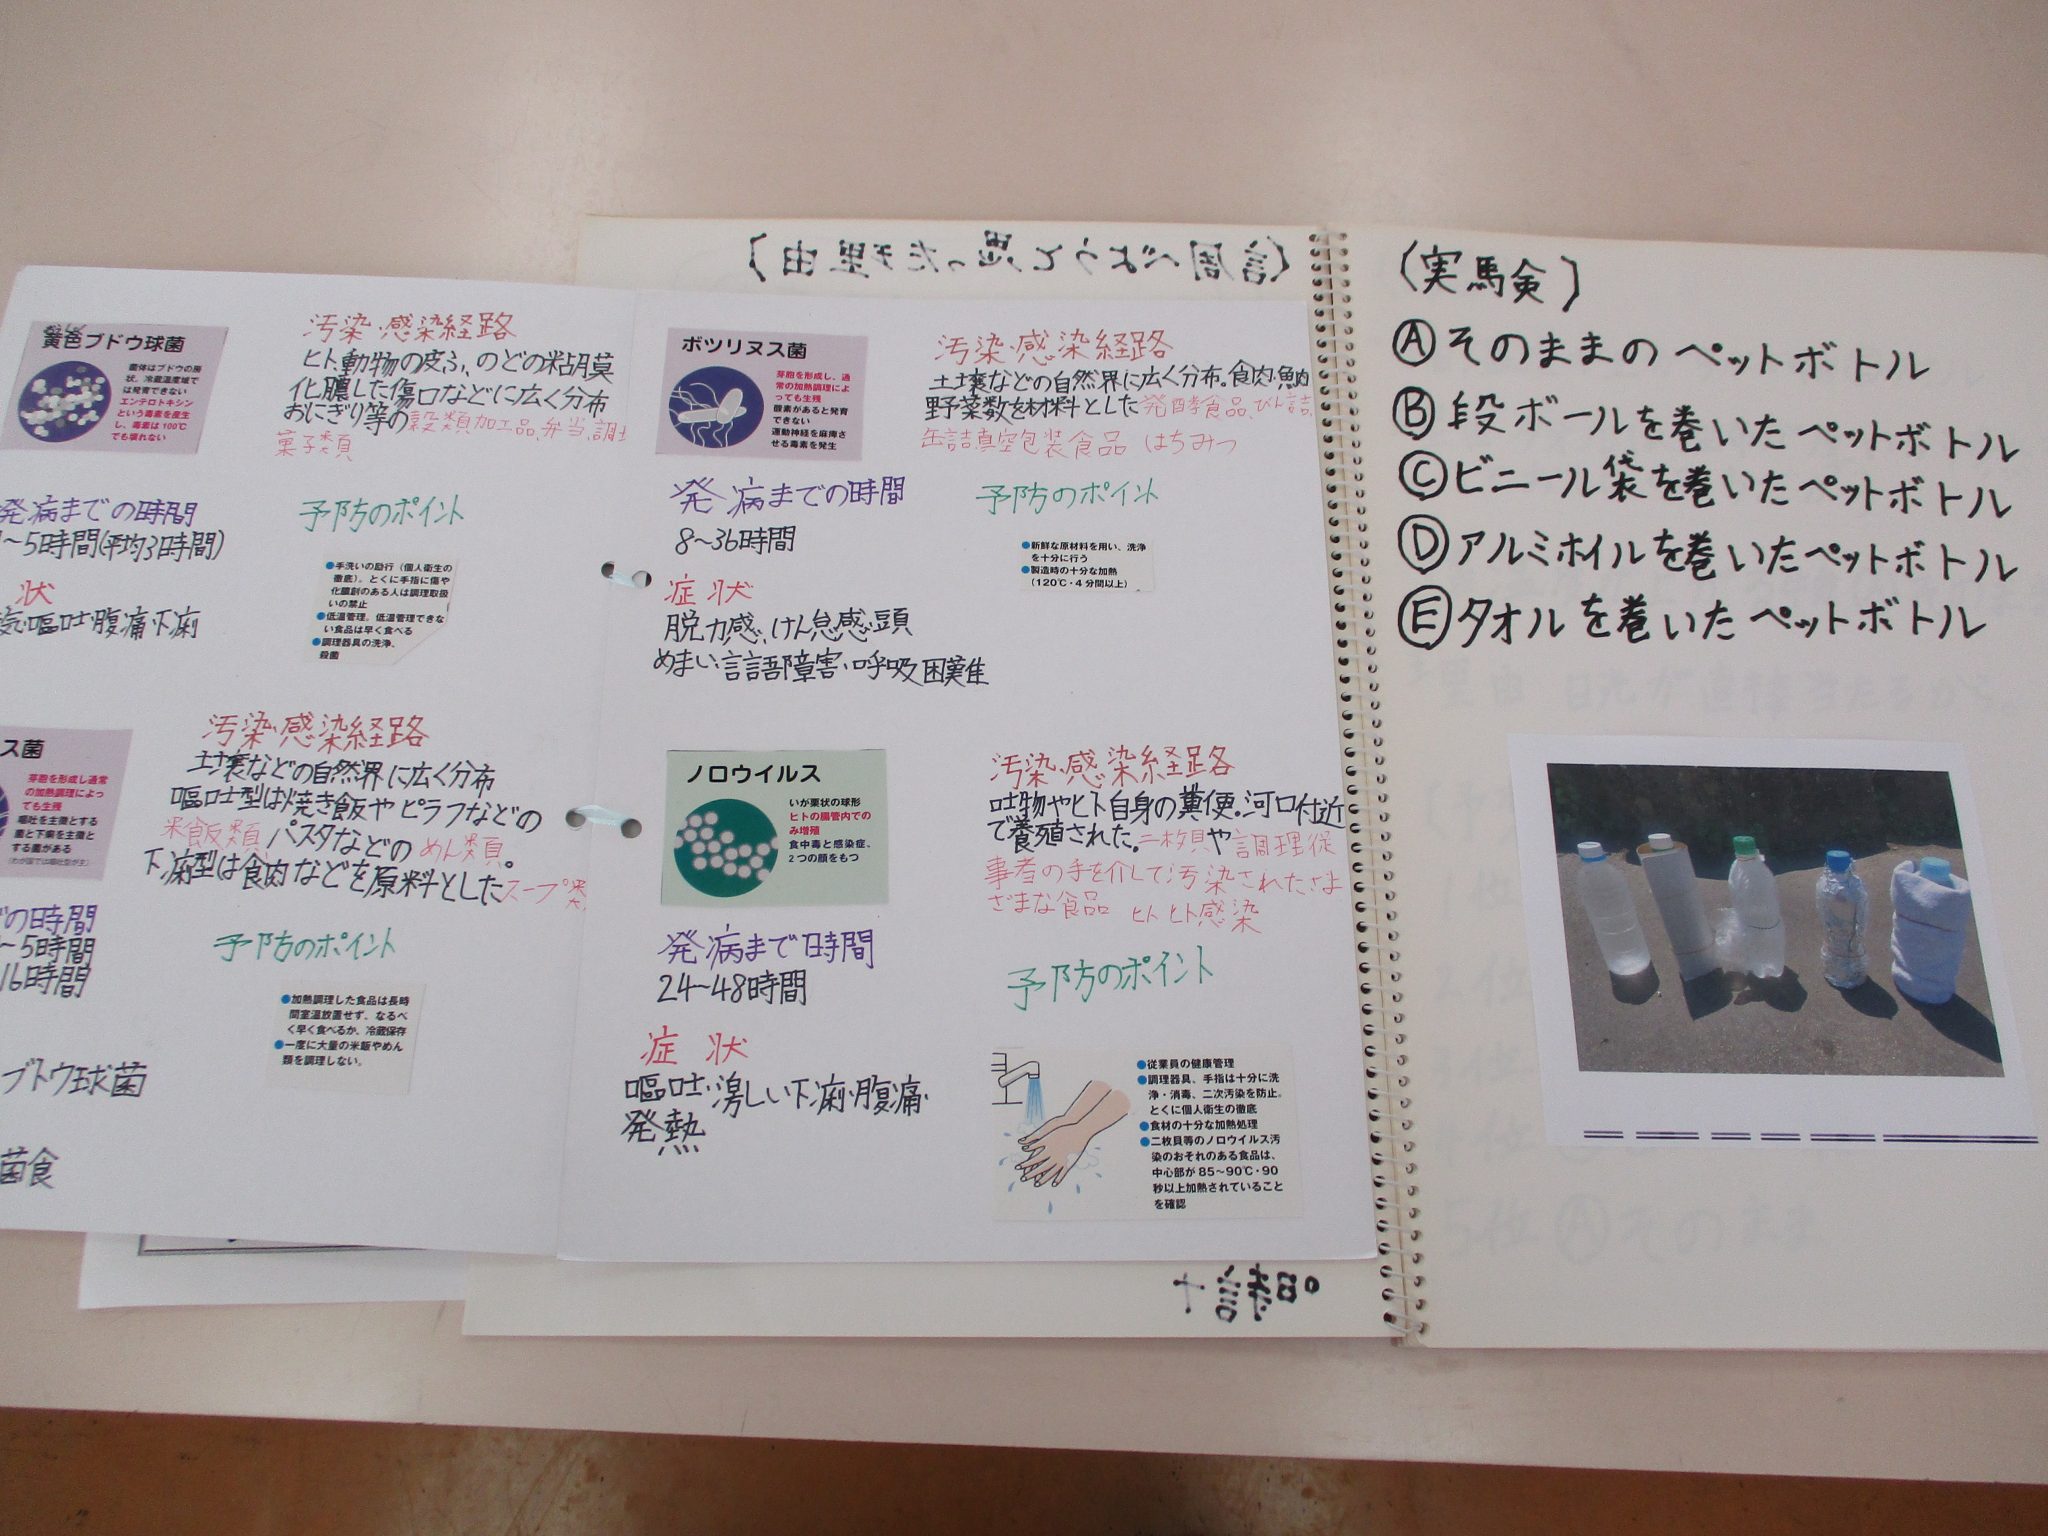 黄色ブドウ球菌
菌体はブドウの房
状、冷蔵温度域で
は発育できない
エンテロトキシン
という毒素を産生
し、毒素は100℃
でも壊れない
汚染・感染経路
ヒト、動物の皮ふ、のどの粘膜
化膿した傷口などに広く分布
おにぎり等の穀類加工品、弁当、調
菓子類
発病までの時間
～5時間(平均3時間)
予防のポイント
●手洗いの励行（個人衛生の
徹底）。とくに手指に傷や
化膿創のある人は調理取扱
いの禁止
●低温管理。低温管理できな
い食品は早く食べる
●調理器具の洗浄、
殺菌
状
気・嘔吐・腹痛・下痢
ス菌
芽胞を形成し通常
の加熱調理によっ
ても生残
嘔吐を主徴とする
菌と下痢を主徴と
する菌がある
(わが国では嘔吐型が主)
汚染・感染経路
土壌などの自然界に広く分布
嘔吐型は焼き飯やピラフなどの
米飯類 パスタなどのめん類
下痢型は食肉などを原料としたスープ類
の時間
～5時間
16時間
予防のポイント
●加熱調理した食品は長時
間室温放置せず、なるべ
く早く食べるか、冷蔵保存
●一度に大量の米飯やめん
類を調理しない。
ブドウ球菌
菌食
ボツリヌス菌
芽胞を形成し、通
常の加熱調理によ
っても生残
酸素があると発育
できない
運動神経を麻痺さ
せる毒素を発生
汚染・感染経路
土壌などの自然界に広く分布。食肉・魚肉
野菜数を材料とした発酵食品、びん詰、
缶詰真空包装食品 はちみつ
発病までの時間
8～36時間
予防のポイント
●新鮮な原材料を用い、洗浄
を十分に行う
●製造時の十分な加熱
（120℃・4分間以上）
症状
脱力感、けん怠感・頭
めまい・言語障害・呼吸困難
ノロウイルス
いが栗状の球形
ヒトの腸管内での
み増殖
食中毒と感染症、
2つの顔をもつ
汚染・感染経路
吐物やヒト自身の糞便。河口付近
で養殖された。二枚貝や調理従
事者の手を介して汚染されたさま
ざまな食品 ヒト ヒト感染
発病まで時間
24～48時間
予防のポイント
症状
嘔吐・激しい下痢・腹痛・
発熱
●従業員の健康管理
●調理器具、手指は十分に洗
浄・消毒、二次汚染を防止。
とくに個人衛生の徹底
●食材の十分な加熱処理
●二枚貝等のノロウイルス汚
染のおそれのある食品は、
中心部が85～90℃・90
秒以上加熱されていること
を確認
(調べようと思った理由)
(実験)
Ⓐそのままのペットボトル
Ⓑ段ボールを巻いたペットボトル
Ⓒビニール袋を巻いたペットボトル
Ⓓアルミホイルを巻いたペットボトル
Ⓔタオルを巻いたペットボトル